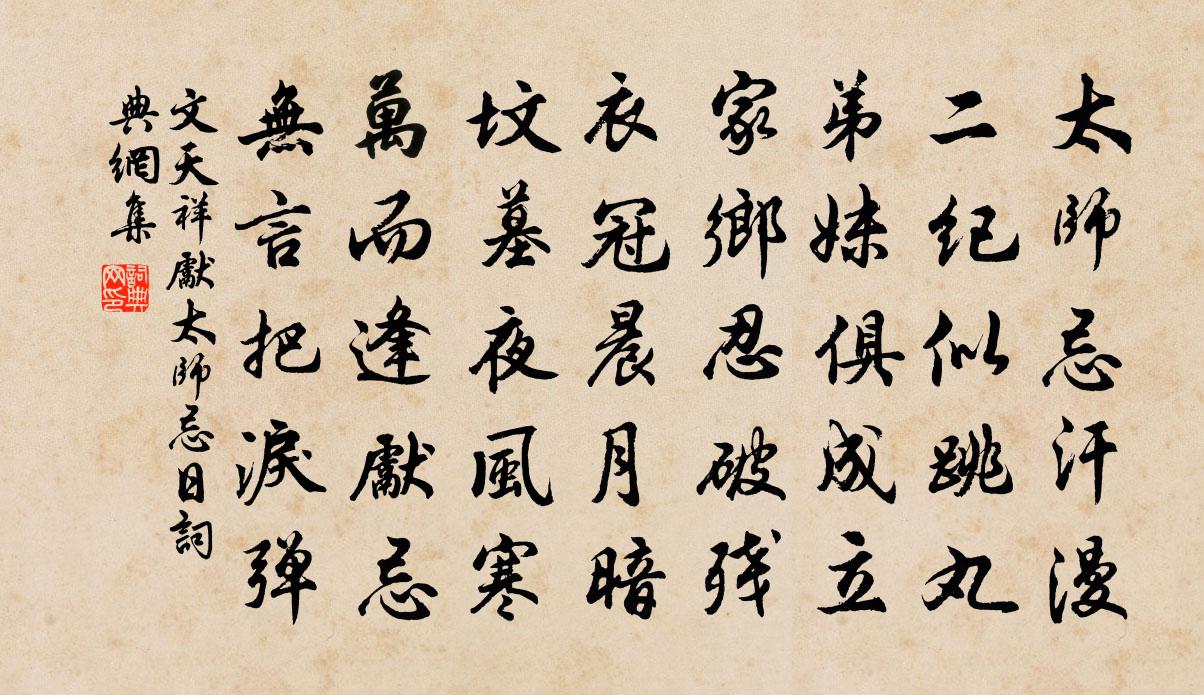 太師忌汗漫
二紀似跳丸
弟妹俱成立
家鄉忍破殘
衣冠晨月暗
坟墓夜風寒
萬而逢獻忌
無言把淚弹
文天祥獻太師忌日詞
典網集
詞典網印